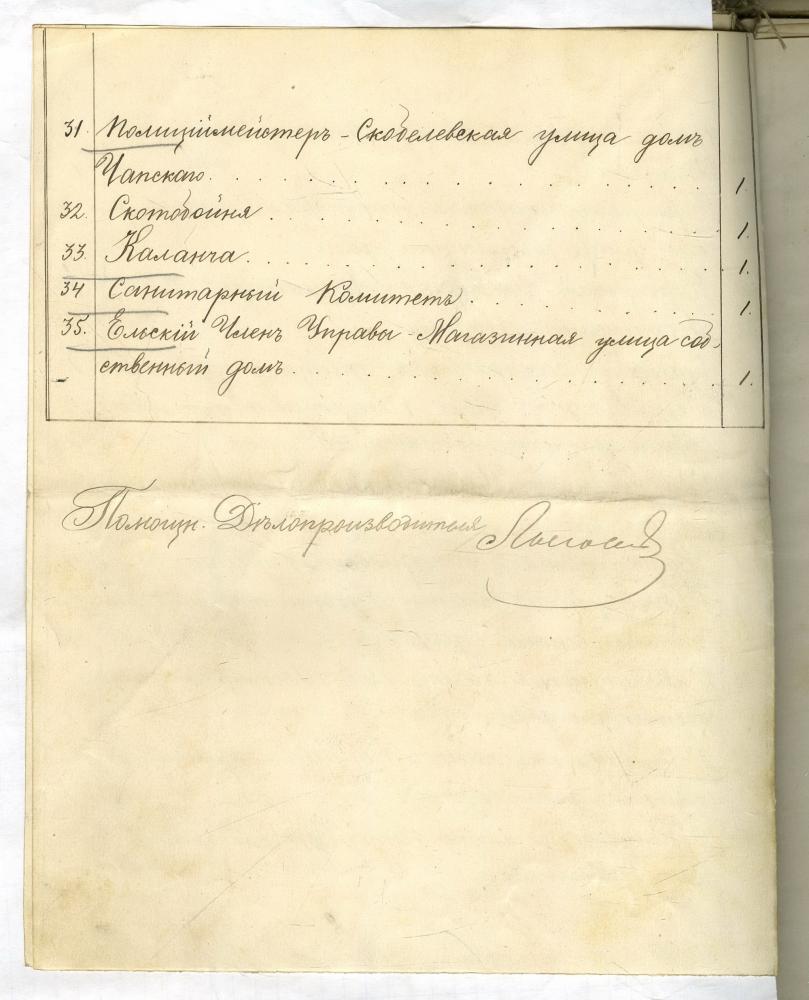 31. Полиціймейстеръ - Скобелевская улица домъ
Чапскаго. . . . . . . . . . . . . . . . 1.
32. Скотобойня . . . . . . . . . . . . . . 1.
33. Каланча. . . . . . . . . . . . . . . . 1.
34 Санитарный Комитетъ. . . . . . . . 1.
35. Ельскій Членъ Управы - Магазинная улица соб-
ственный домъ. . . . . . . . . . . . . 1.
Помощн. Дѣлопроизводителя